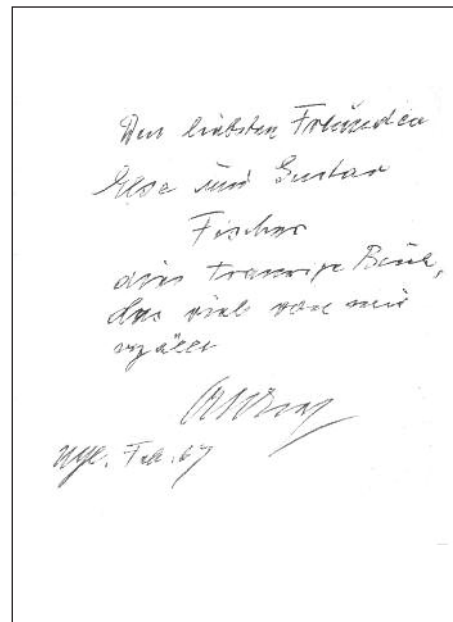 Den liebsten Freunden
Else und Gustav
Fischer
dies traurige Buch,
das viel von mir
erzählt
NYC. Feb. 67